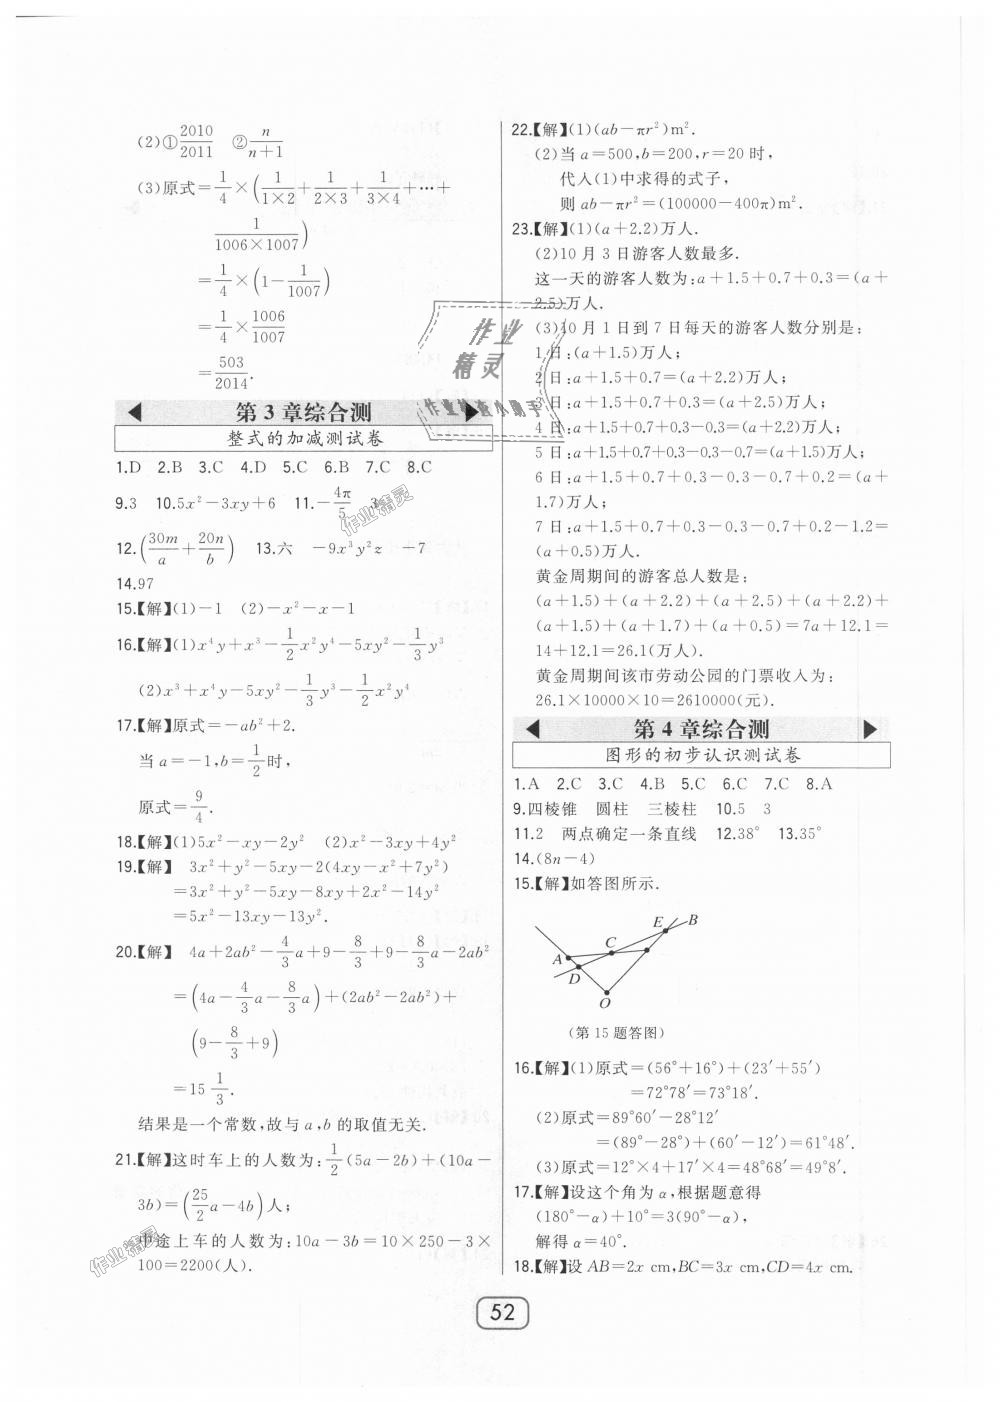 (2)①2010/2011　②n/(n+1)
(3)原式=1/4×(1/(1×2)+1/(2×3)+1/(3×4)+…+
1/(1006×1007))
=1/4×(1-1/1007)
=1/4×1006/1007
=503/2014.
第3章综合测
整式的加减测试卷
1.D　2.B　3.C　4.D　5.C　6.B　7.C　8.C
9.3　10.5x²-3xy+6　11.-4π/5　3
12.(30m/a+20n/b)　13.六　-9x³y²z　-7
14.97
15.【解】(1)-1　(2)-x²-x-1
16.【解】(1)x⁴y+x³-1/2x²y⁴-5xy²-1/3y³
(2)x³+x⁴y-5xy²-1/3y³-1/2x²y⁴
17.【解】原式=-ab²+2.
当a=-1,b=1/2时,
原式=9/4.
18.【解】(1)5x²-xy-2y²　(2)x²-3xy+4y²
19.【解】　3x²+y²-5xy-2(4xy-x²+7y²)
=3x²+y²-5xy-8xy+2x²-14y²
=5x²-13xy-13y².
20.【解】　4a+2ab²-4/3a+9-8/3+9-8/3a-2ab²
=(4a-4/3a-8/3a)+(2ab²-2ab²)+
(9-8/3+9)
=15 1/3.
结果是一个常数,故与a,b的取值无关.
21.【解】这时车上的人数为:1/2(5a-2b)+(10a-
3b)=(25/2a-4b)人;
中途上车的人数为:10a-3b=10×250-3×
100=2200(人).
22.【解】(1)(ab-πr²)m².
(2)当a=500,b=200,r=20时,
代入(1)中求得的式子,
则ab-πr²=(100000-400π)m².
23.【解】(1)(a+2.2)万人.
(2)10月3日游客人数最多.
这一天的游客人数为:a+1.5+0.7+0.3=(a+
2.5)万人.
(3)10月1日到7日每天的游客人数分别是:
1日:(a+1.5)万人;
2日:a+1.5+0.7=(a+2.2)万人;
3日:a+1.5+0.7+0.3=(a+2.5)万人;
4日:a+1.5+0.7+0.3-0.3=(a+2.2)万人;
5日:a+1.5+0.7+0.3-0.3-0.7=(a+1.5)万人;
6日:a+1.5+0.7+0.3-0.3-0.7+0.2=(a+
1.7)万人;
7日:a+1.5+0.7+0.3-0.3-0.7+0.2-1.2=
(a+0.5)万人.
黄金周期间的游客总人数是:
(a+1.5)+(a+2.2)+(a+2.5)+(a+2.2)+
(a+1.5)+(a+1.7)+(a+0.5)=7a+12.1=
14+12.1=26.1(万人).
黄金周期间该市劳动公园的门票收入为:
26.1×10000×10=2610000(元).
第4章综合测
图形的初步认识测试卷
1.A　2.C　3.C　4.B　5.C　6.C　7.C　8.A
9.四棱锥　圆柱　三棱柱　10.5　3
11.2　两点确定一条直线　12.38°　13.35°
14.(8n-4)
15.【解】如答图所示.
E
B
C
A
D
O
(第15题答图)
16.【解】(1)原式=(56°+16°)+(23′+55′)
=72°78′=73°18′.
(2)原式=89°60′-28°12′
=(89°-28°)+(60′-12′)=61°48′.
(3)原式=12°×4+17′×4=48°68′=49°8′.
17.【解】设这个角为α,根据题意得
(180°-α)+10°=3(90°-α),
解得α=40°.
18.【解】设AB=2x cm,BC=3x cm,CD=4x cm.
52
作业
精灵
作业检查小助手
作业精灵
作业精灵